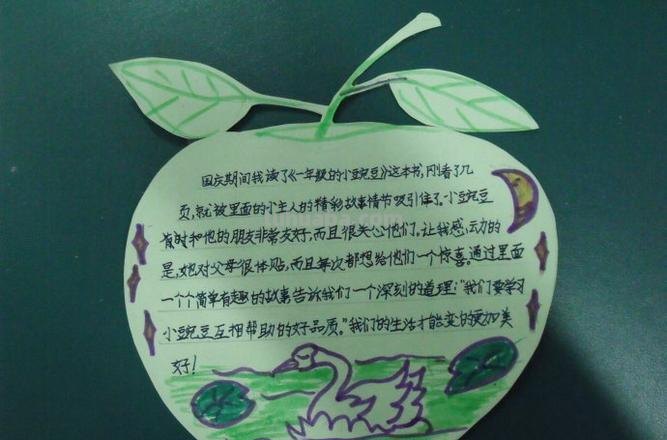 国庆期间我读了《一年级的小豌豆》这本书,刚看了几
页,就被里面的小主人的精彩故事情节吸引住了。小豌豆
有时和他的朋友非常友好,而且很关心他们,让我感动的
是,她对父母很体贴,而且每次都想给他们一个惊喜。通过里面
一个个简单有趣的故事告诉我们一个深刻的道理:"我们要学习
小豌豆互相帮助的好品质。"我们的生活才能变的更加美
好!